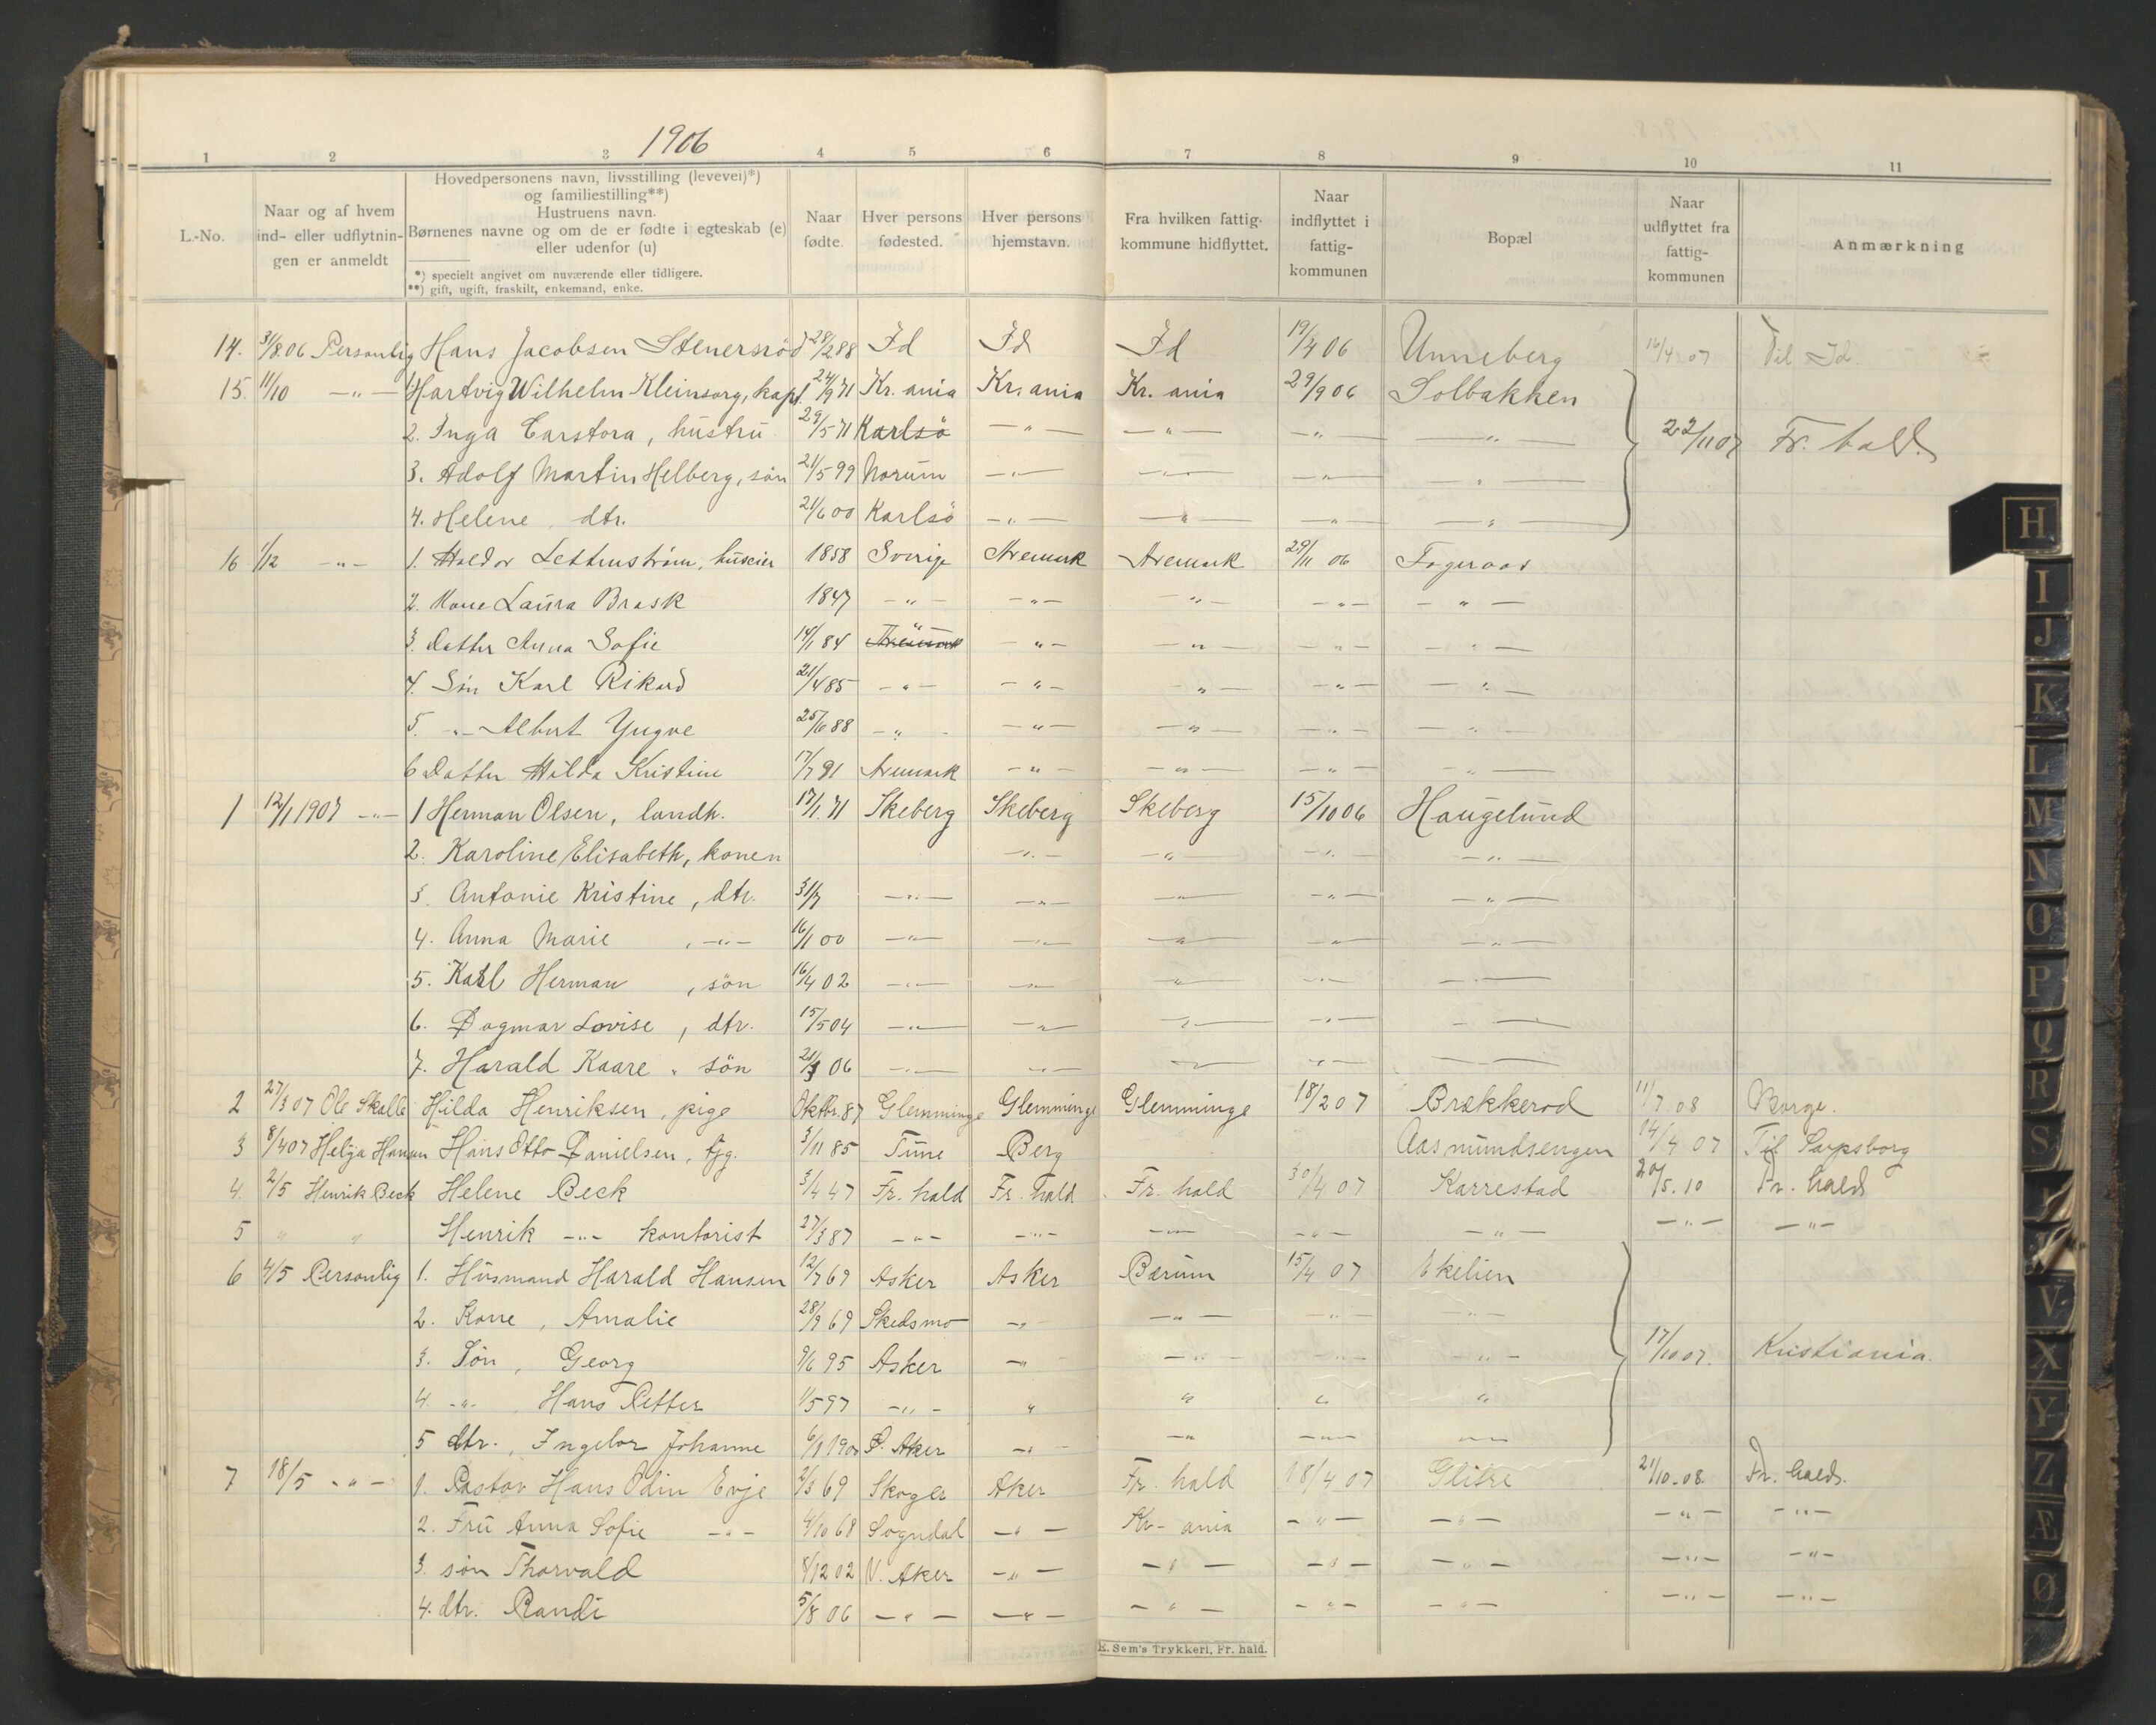 1906
1 2 3 4 5 6 7 8 9 10 11
L.-No.
Naar og af hvem ind- eller udflytnin-gen er anmeldt
Hovedpersonens navn, livsstilling (levevei)*) og familiestilling**)
Hustruens navn.
Børnenes navne og om de er fødte i egteskab (e) eller udenfor (u)
*) specielt angivet om nuværende eller tidligere.
**) gift, ugift, fraskilt, enkemand, enke.
Naar fødte.
Hver persons fødested.
Hver persons hjemstavn.
Fra hvilken fattig-kommune hidflyttet.
Naar indflyttet i fattig-kommunen
Bopæl
Naar udflyttet fra fattig-kommunen
Anmærkning
14. 3/8.06 Personlig Hans Jacobsen Stenersröd 28/2 88 Id Id Id 19/4 06 Unneberg 16/4 07 Til Id.
15. 11/10 -"- 1. Hartvig Wilhelm Kleinsorg, kapt. 24/9 71 Kr. ania Kr. ania Kr. ania 29/9 06 Solbakken
2. Inga Carstora, hustru 29/5 71 Karlsö -"- -"- -"- -"- 22/11 07 Fr. hald.
3. Adolf Martin Helberg, sön 21/5 99 Norum -"- -"- -"- -"-
4. Helene, dtr. 21/6 00 Karlsö -"- -"- -"- -"-
16 1/12 -"- 1. Haldor Lettenström, huseier 1858 Sverig Aremark Aremark 29/11 06 Fageraas
2. Kone Laura Brask 1847 -"- -"- -"- -"- -"-
3. Datter Anna Sofie 14/1 84 Aremark -"- -"- -"- -"- -"-
4. Sön Karl Rikard 21/4 85 -"- -"- -"- -"- -"-
5. -"- Albert Yngve 25/6 88 -"- -"- -"- -"- -"-
6 Datter Hilda Kristine 17/7 91 Aremark -"- -"- -"- -"-
1 12/1 1907 -"- 1 Herman Olsen, landh. 17/1. 71 Skeberg Skeberg Skeberg 15/10 06 Haugelund
2. Karoline Elisabeth, konen -"- -"- -"- -"-
3. Antonie Kristine, dtr. 31/7 -"- -"- -"- -"- -"-
4. Anna Marie, -"- 16/1 00 -"- -"- -"- -"- -"-
5. Karl Herman, sön 16/4 02 -"- -"- -"- -"- -"-
6. Dagmar Lovise, dtr. 15/5 04 -"- -"- -"- -"- -"-
7. Harald Kaare " sön 21/3 06 -"- -"- -"- -"- -"-
2 27/3 07 Ole Skolle Hilda Henriksen, pige Oktbr. 87 Glemminge Glemminge Glemminge 18/2 07 Brækkerød 11/7 08 Borge.
3 8/4 07 Helja Hansen Hans Otto Danielsen, tjg. 3/11 85 Tune Berg Aasmundsengen 14/4 07 Til Sarpsborg
4. 2/5 Henrik Beck Helene Beck 3/4 47 Fr. hald Fr. hald Fr. hald 30/4 07 Karrestad 20/5. 10 Fr. hald
5 " " Henrik -"- kontorist 27/3 87 -"- -"- -"- -"- -"- -"- -"-
6 4/5 Personlig 1. Husmand Harald Hansen 12/7 69 Asker Asker Bærum 15/4 07 Ekelien
2. Kone, Amalie 28/9 69 Skedsmo -"- -"- -"- -"-
3. Sön, Georg 9/6 95 Asker -"- -"- -"- -"- 17/10 07. Kristiania.
4. -"- Hans Petter 1/5 97 -"- " " " "
5 dtr., Ingebor Johanne 6/1 1900 Ö. Aker -"- -"- -"- -"-
7 18/5 -"- 1. Pastor Hans Odin Evje 2/3 69 Skoger Aker Fr. hald 18/4 07 Glitre 21/10. 08. Fr. hald.
2. Fru Anna Sofie -"- 4/10 68 Sogndal -"- Kr- ania -"- -"- -"- -"-
3. sön Thorvald 8/12 02 V. Aker -"- -"- -"- -"- -"- -"-
4. dtr. Randi 5/8 06 -"- -"- -"- -"- -"- -"- -"-
E. Sem's Trykkeri, Fr. hald.
H
I
J
K
L
M
N
O
P
Q
R
S
V
X
Y
Z
Æ
Ø